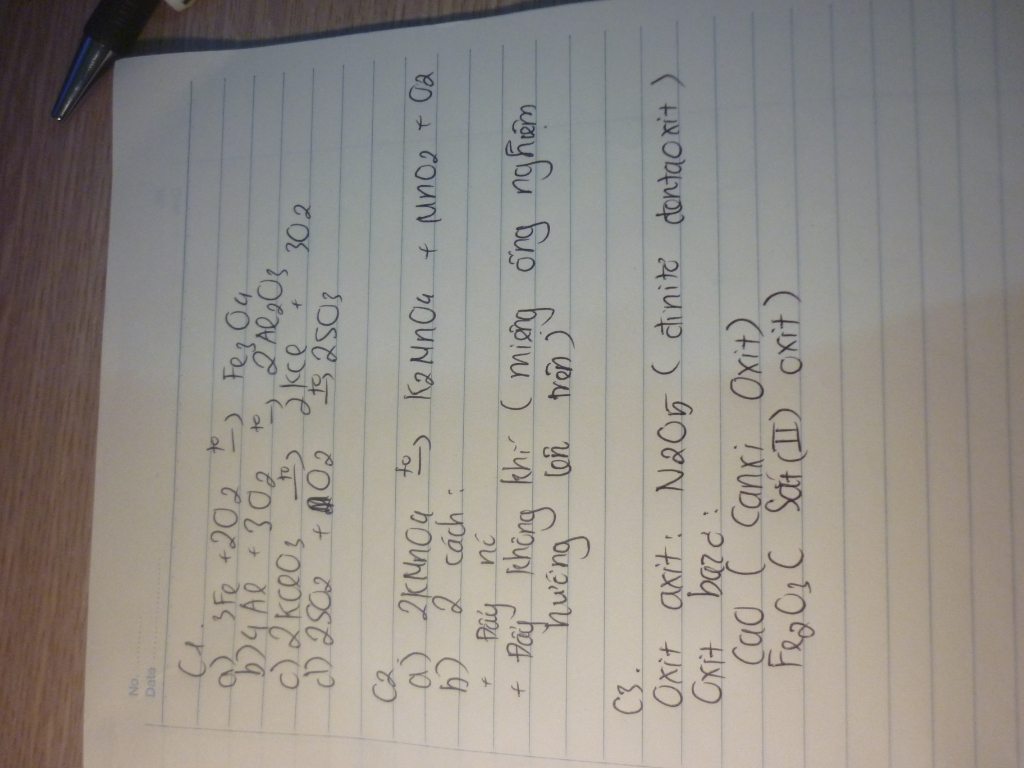 No.
Date
C1.
a) 3Fe + 2O2 t° → Fe3O4
b) 4Al + 3O2 t° → 2Al2O3
c) 2KClO3 t° → 2KCl + 3O2
d) 2SO2 + O2 t° → 2SO3
C2
a) 2KMnO4 t° → K2MnO4 + MnO2 + O2
b) 2 cách:
+ Đẩy nc
+ Đẩy không khí (miệng ống nghiệm
hướng lên trên)
C3.
Oxit axit: N2O5 (đinitơ pentaoxit)
Oxit bazơ:
CaO (Canxi Oxit)
Fe2O3 (Sắt (II) oxit)